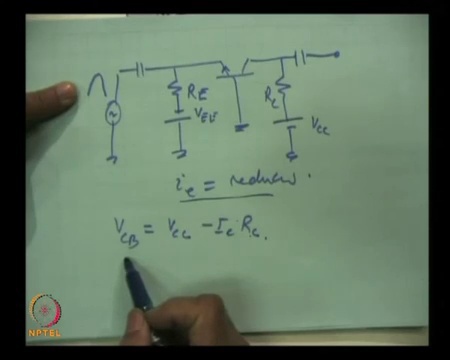 RE
VEE
Rc
Vcc
ie = reduces.
VCB = Vcc - Ic Rc.
NPTEL